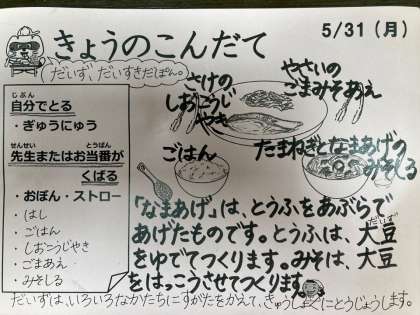 きょうのこんだて
5/31(月)
だいず、だいすきだぽん。
さけの
しおこうじ
やき
やさいの
ごまみそあえ
ごはん
たまねぎとなまあげの
みそしる
じぶん
自分でとる
・ぎゅうにゅう
せんせい とうばん
先生またはお当番が
くばる
・おぼん・ストロー
・はし
・ごはん
・しおこうじやき
・ごまあえ
・みそしる
「なまあげ」は、とうふをあぶらで
あげたものです。とうふは、大豆
だいず
をゆでてつくります。みそは、大豆
をはっこうさせてつくります。
だいずは、いろいろなかたちにすがたをかえて、きゅうしょくにとうじょうします。